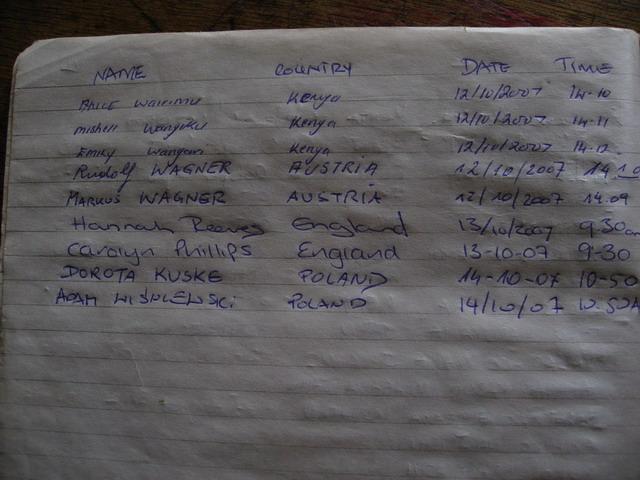 NAME COUNTRY DATE TIME
Wairimu Kenya 12/10/2007 14-10
mishell Wanjiku Kenya 12/10/2007 14-11
Emily Wangari Kenya 12/10/2007 14-12
Rudolf WAGNER AUSTRIA 12/10/2007 14.10
MARKUS WAGNER AUSTRIA 12/10/2007 14.09
Hannah Reeves England 13/10/2007 9-30am
Carolyn Phillips England 13-10-07 9-30
DOROTA KUSKE POLAND 14-10-07 10-50
ADAM WIŚNIEWSKI POLAND 14/10/07 10.50A